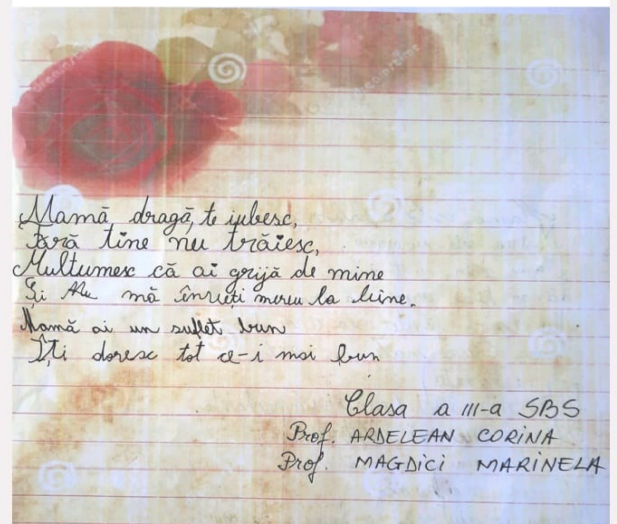 Mamă dragă, te iubesc,
Fără tine nu trăiesc,
Multumesc că ai grijă de mine
Și mă înveți mereu la bine.
Mamă ai un suflet bun
Îți doresc tot ce-i mai bun
Clasa a III-a SBS
Prof. ARDELEAN CORINA
Prof. MAGDICI MARINELA